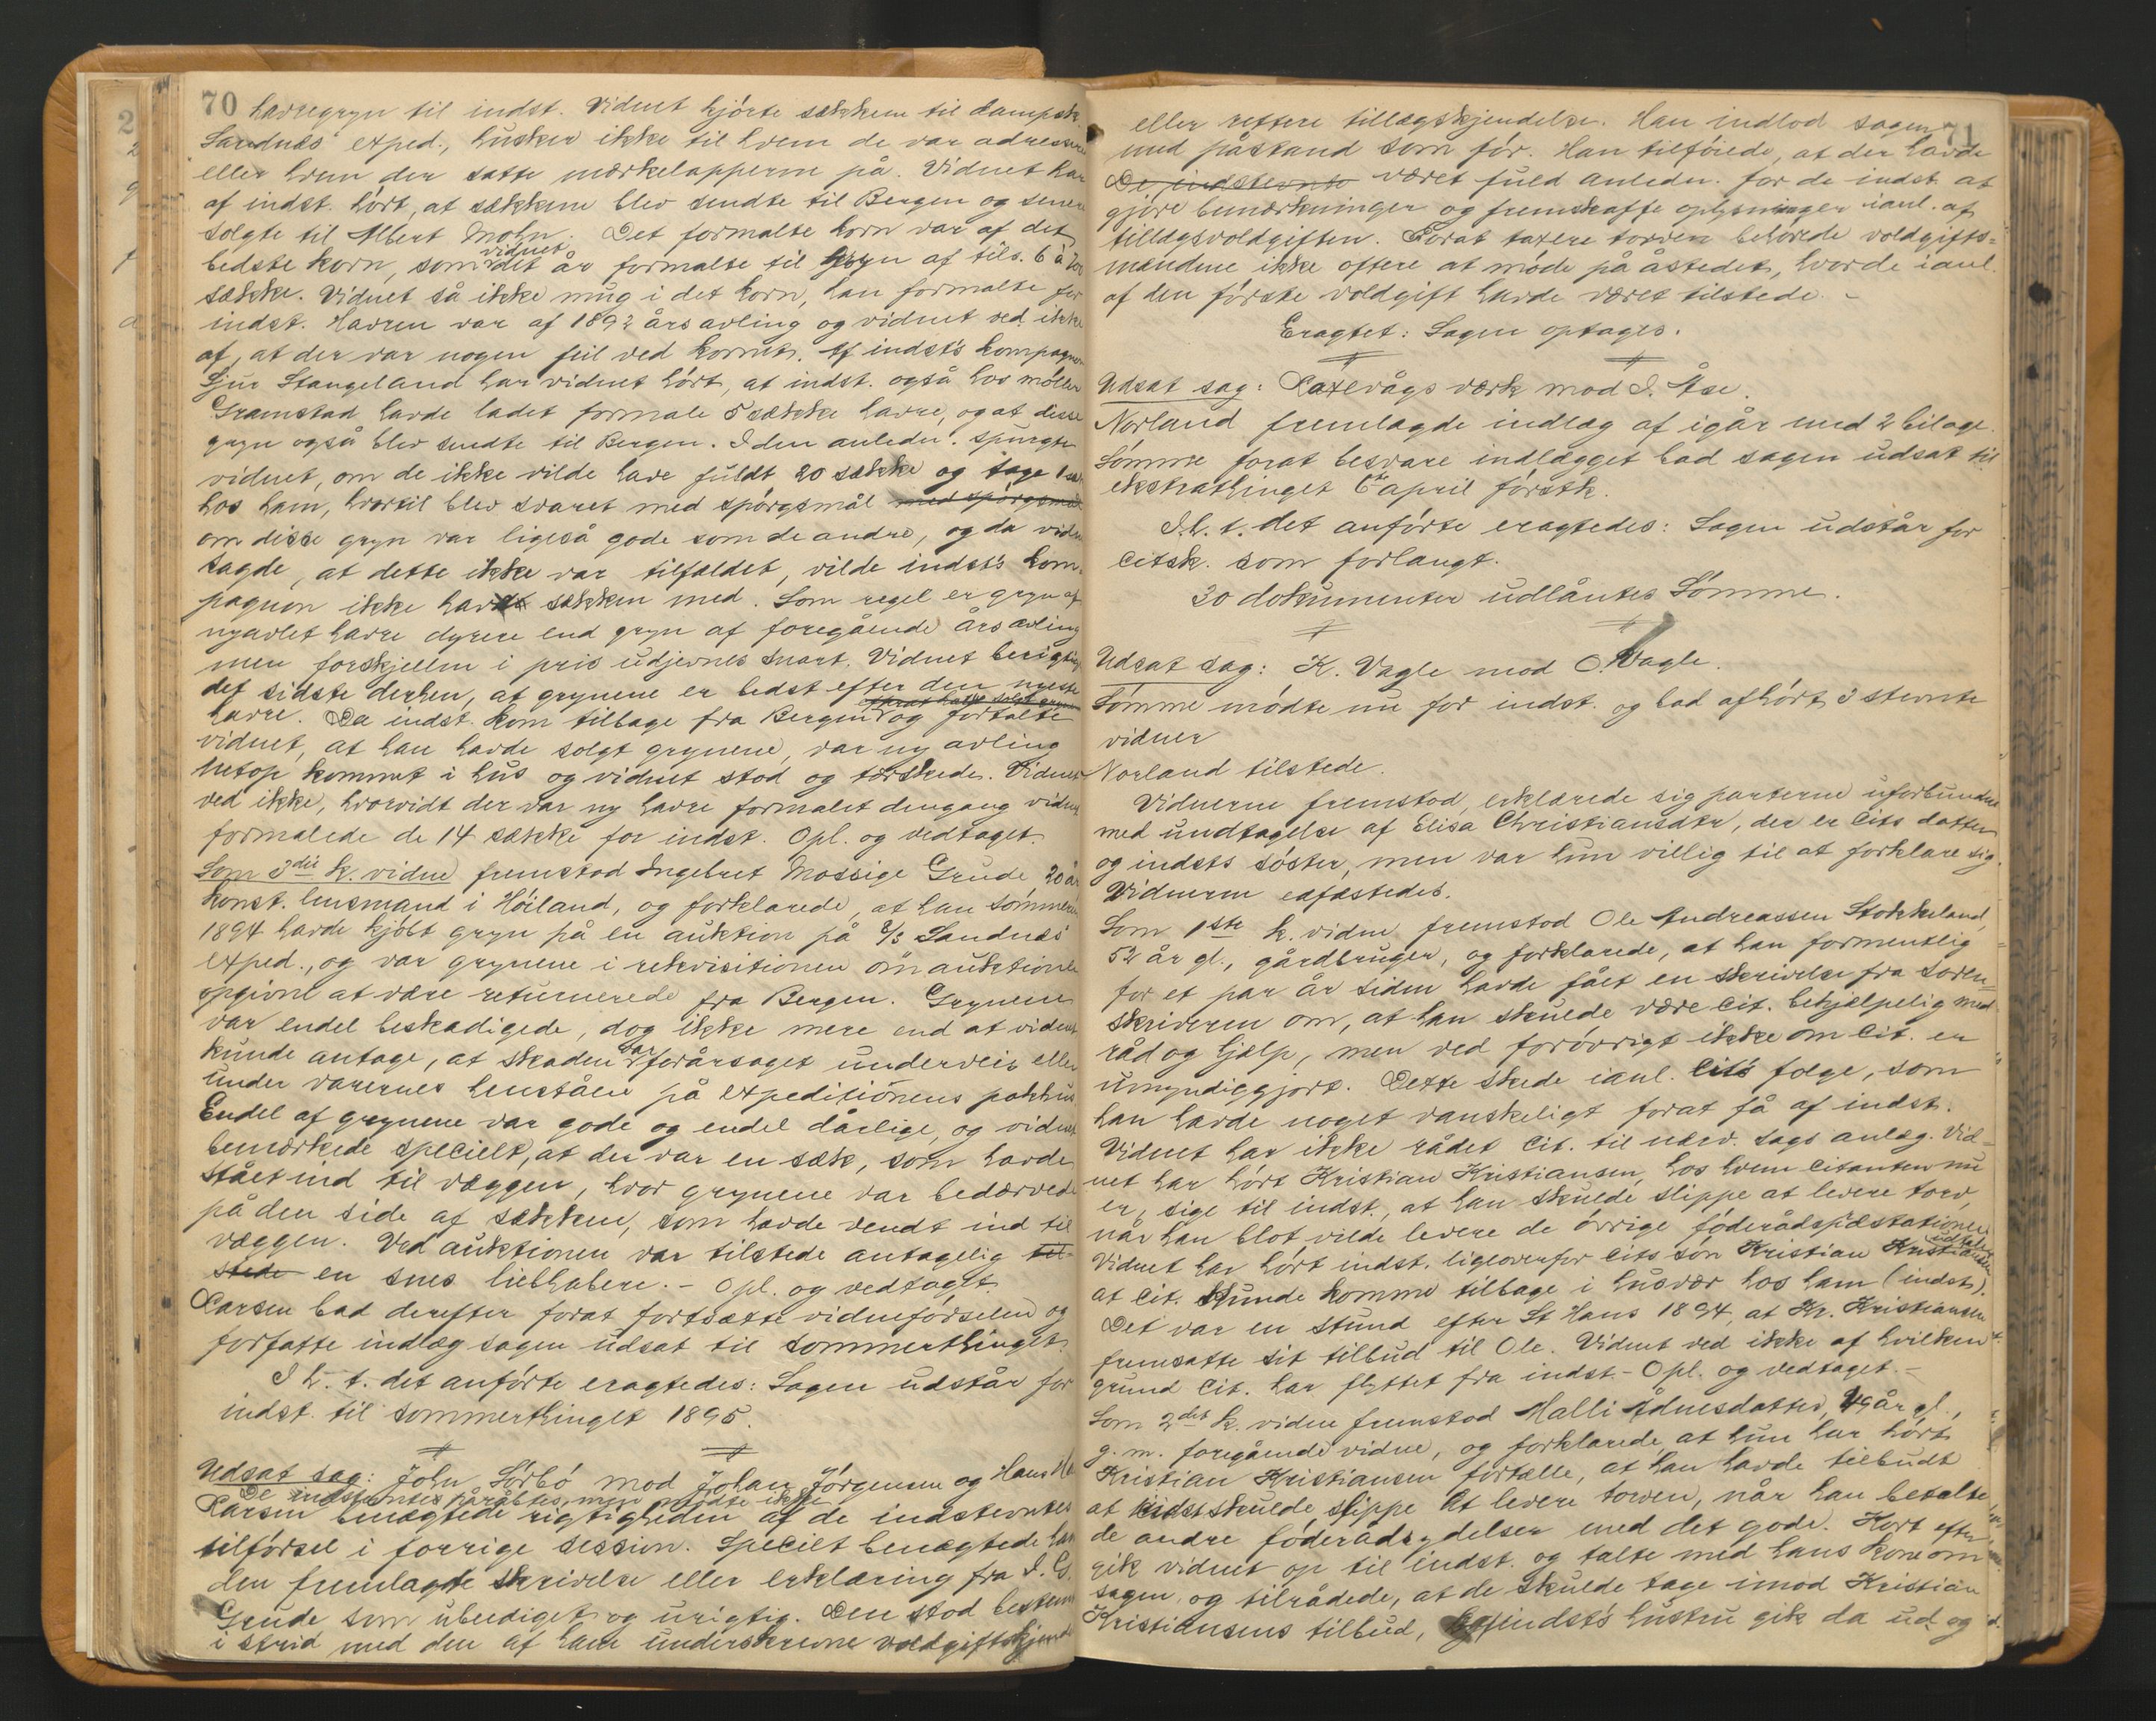 70
havregryn til indst. Vidnet kjørte sækkene til dampsk.
Sandnæs' exped., husker ikke til hvem de var adresseret
eller hvem der satte mærkelapperne på. Vidnet har
af indst. hørt, at sækkene blev sendte til Bergen og senere
solgte til Albert Mohn. Det formalte korn var af det
bedste korn, som vidnet det år formalte til gryn af tils. 6 à 700
sække. Vidnet så ikke mug i det korn, han formalte for
indst. Havren var af 1892 års avling og vidnet ved ikke
af, at der var nogen feil ved kornet. Af indst's kompagnon
Sjur Stangeland har vidnet hørt, at indst. også hos møller
Gramstad havde ladet formale 5 sække havre, og at disse
gryn også blev sendte til Bergen. I den anledn. spurgte
vidnet, om de ikke vilde have fuldt 20 sække og tage 1 sæk
hos ham, hvortil blev svaret med spørgsmål med spørgsmål
om disse gryn var ligeså gode som de andre, og da vidnet
sagde, at dette ikke var tilfældet, vilde indst's kom-
pagnon ikke have sækken med. Som regel er gryn af
nyavlet havre dyrere end gryn af foregående års avling
men forskjellen i pris udjevnes snart. Vidnet berigtiget
det sidste derhen, at grynene er bedst efter den nyeste
havre. Da indst. kom tilbage fra Bergen og fortalte
vidnet, at han havde solgt grynene, var ny avling
netop kommet i hus og vidnet stod og tærskede. Vidnet
ved ikke, hvorvidt der var ny havre formalet dengang vidnet
formalede de 14 sække for indst. Opl. og vedtaget.
Som 3die k. vidne fremstod Ingebret Mossige Grude, 20 år
konst. lensmand i Høiland, og forklarede, at han sommeren
1894 havde kjøbt gryn på en auktion på d/s Sandnæs'
exped., og var grynene i rekvisitionen om auktionen
opgivne at være returnerede fra Bergen. Grynene
var endel beskadigede, dog ikke mere end at vidnet
kunde antage, at skaden var forårsaget underveis eller
under varernes henståen på expeditionens pakhus
Endel af grynene var gode og endel dårlige, og vidnet
bemærkede specielt, at der var en sæk, som havde
stået ind til væggen, hvor grynene var bedærvede
på den side af sækken, som havde vendt ind til
væggen. Ved auktionen var tilstede antagelig til-
stede en snes liebhabere. - Opl. og vedtaget.
Larsen bad derefter forat fortsætte vidneførselen og
forfatte indlæg sagen udsat til sommerthinget.
I h. t. det anførte eragtedes: Sagen udstår for
indst. til sommerthinget 1895.
Udsat sag: John Sørbø mod Johan Jørgensen og Hans
De indstevntes påråbtes, men mødte ikke
Larsen benægtede rigtigheden af de indstevntes
tilførsel i forrige session. Specielt benægtede han
den fremlagte skrivelse eller erklæring fra I. G.
Grude som ubeediget og urigtig. Den stod bestemt
i strid med den af ham underskrevne voldgiftskjendelse
71
eller rettere tillægskjendelse. Han indlod sagen
med påstand som før. Han tilføiede, at der havde
De indstevnte været fuld anledn. for de indst. at
gjøre bemærkninger og fremskaffe oplysninger ianl. af
tillægsvoldgiften. Forat taxere torven behøvede voldgifts-
mændene ikke oftere at møde på åstedet, hvor de ianl.
af den første voldgift havde været tilstede. -
Eragtet: Sagen optages.
Udsat sag: Laxevågs værk mod I. Åse.
Norland fremlagde indlæg af igår med 2 bilage.
Sømme forat besvare indlægget bad sagen udsat til
ekstrathinget 6te april førstk.
I. h. t. det anførte eragtedes: Sagen udstår for
citsk. som forlangt.
30 dokumenter udlåntes Sømme.
Udsat sag: K. Vagle mod O. Vagle.
Sømme mødte nu for indst. og bad afhørt 3 stevnte
vidner
Norland tilstede.
Vidnerne fremstod, erklærede sig parterne uforbundne
med undtagelse af Elisa Christiansdtr, der er cits datter
og indsts søster, men var hun villig til at forklare sig.
Vidnerne edfæstedes.
Som 1ste k. vidne fremstod Ole Andreassen Stokkeland,
52 år gl., gårdbruger, og forklarede, at han formentlig
for et par år siden havde fået en skrivelse fra soren-
skriveren om, at han skulde være cit. behjælpelig med
råd og hjælp, men ved forøvrigt ikke om cit. er
umyndiggjort. Dette skede ianl. cits følge, som
han havde noget vanskeligt forat få af indst.
Vidnet har ikke rådet cit. til nærv. sags anlæg. Vid-
net har hørt Kristian Kristiansen, hos hvem citanten nu
er, sige til indst., at han skulde slippe at levere torv,
når han blot vilde levere de øvrige føderådspræstationer
Vidnet har hørt indst. ligeoverfor cits søn Kristian Kristiansen udtale
at cit. kunde komme tilbage i husvær hos ham (indst).
Det var en stund efter St Hans 1894, at Kr. Kristiansen
fremsatte sit tilbud til Ole. Vidnet ved ikke af hvilken
grund cit. har flyttet fra indst. - Opl. og vedtaget. -
Som 2det k. vidne fremstod Malli Ådnesdatter, 49 år gl.,
g. m. foregående vidne, og forklarede, at hun har hørt
Kristian Kristiansen fortælle, at han havde tilbudt
at indst skulde slippe at levere torven, når han betalte
de andre føderådsydelser med det gode. Kort efter
gik vidnet op til indst. og talte med hans kone om
sagen, og tilrådede, at de skulde tage imod Kristian
Kristiansens tilbud, indst's hustru gik da ud og